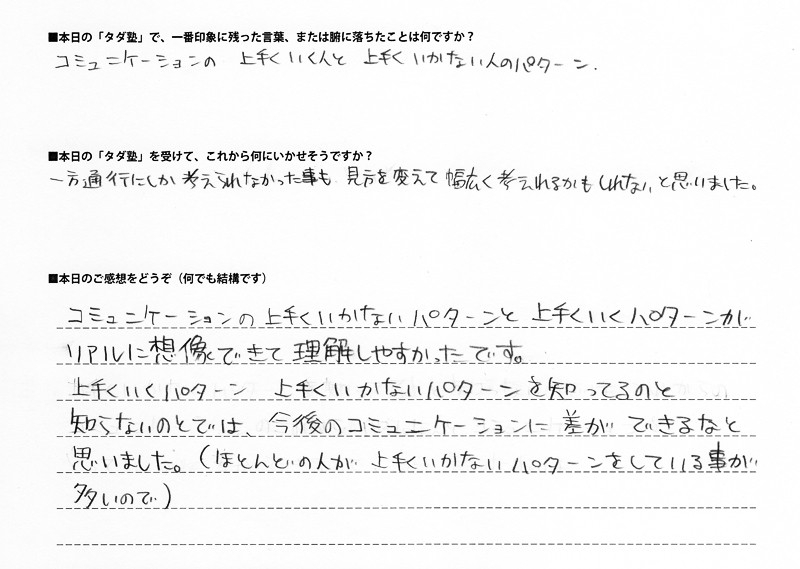 ■本日の「タダ塾」で、一番印象に残った言葉、または腑に落ちたことは何ですか？
コミュニケーションの 上手くいく人と 上手くいかない人のパターン.
■本日の「タダ塾」を受けて、これから何にいかせそうですか？
一方通行にしか考えられなかった事も 見方を変えて幅広く考えれるかもしれない、と思いました。
■本日のご感想をどうぞ（何でも結構です）
コミュニケーションの上手くいかないパターンと 上手くいくパターンが
リアルに想像できて理解しやすかったです。
上手くいくパターン 上手くいかないパターンを知ってるのと
知らないのとでは、今後のコミュニケーションに差ができるなと
思いました。（ほとんどの人が 上手くいかないパターンをしている事が
多いので）